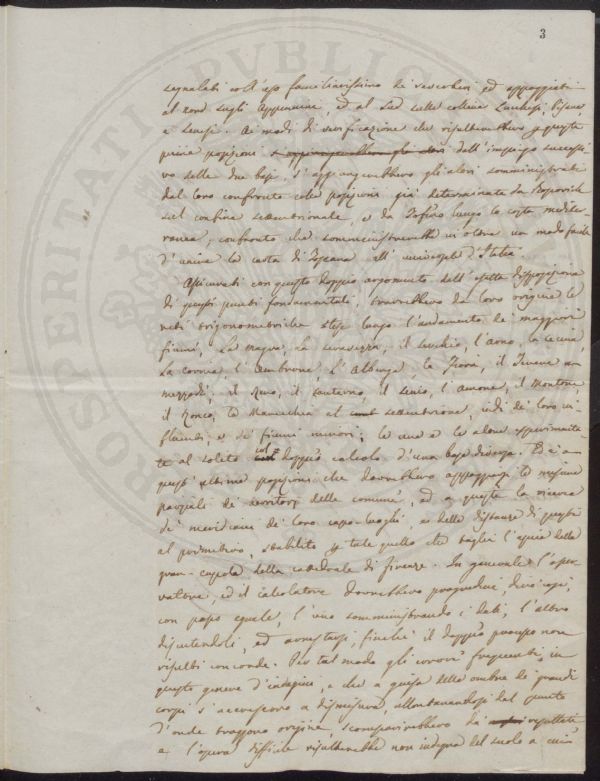 3
segnalati coll'uso famigliarissimo de' raccolti, ed appoggiati
al nord sugli Appennini, ed al Sud sulle colline Lucchesi, Pisane,
e Senesi. Ai modi di verificazione che risulterebbero p queste
prime posizioni dall'impiego successi-
vo delle due basi, s'aggiungerebbero gli altri somministrati
dal loro confronto colle posizioni già determinate da Boscovich
sul confine settentrionale, e da lungo la costa mediter-
ranea; confronto che somministrerebbe in oltre un modo facile
d'unire la carta di Toscana all' universale d'Italia.
Assicurati con questo doppio argomento dell'esatta disposizione
di questi punti fondamentali, trarrebbero da loro origine le
reti trigonometriche stese lungo l'andamento de' maggiori
fiumi, la Magra, la il Serchio, l'Arno, la Cecina,
la Cornia, l'Ombrone, l'Albegna, la Fiora, il Tevere
il Reno, il Santerno, il Senio, l'Amone, il Montone,
il Ronco, la Marecchia al settentrione, indi de' loro in-
fluenti, e de' fiumi minori; le une e le altre
te al solito col doppio calcolo d'una base diversa. Ed a
quest' ultime posizioni che dovrebbero appoggiarsi le misure
parziali de' territorj delle comuni, ed a queste la ricerca
de' meridiani de' loro capo-luoghi, e delle distanze di questi
al primitivo, stabilito p tale quello che tagli l'apice della
gran-cupola della cattedrale di Firenze. In generale l'osser-
vatore, ed il calcolatore dovrebbero progredire, dirò così,
con passo eguale, l'uno somministrando i dati, l'altro
discutendoli, ed finché il doppio processo non
risulti concorde. Per tal modo gli errori frequenti in
questo genere d'indagini, e che a guisa delle ombre de' grandi
corpi s'accrescono a dismisura, allontanandosi dal punto
d'onde traggono origine, scomparirebbero da' risultati
e l'opera difficile risulterebbe non indegna del suolo a cui